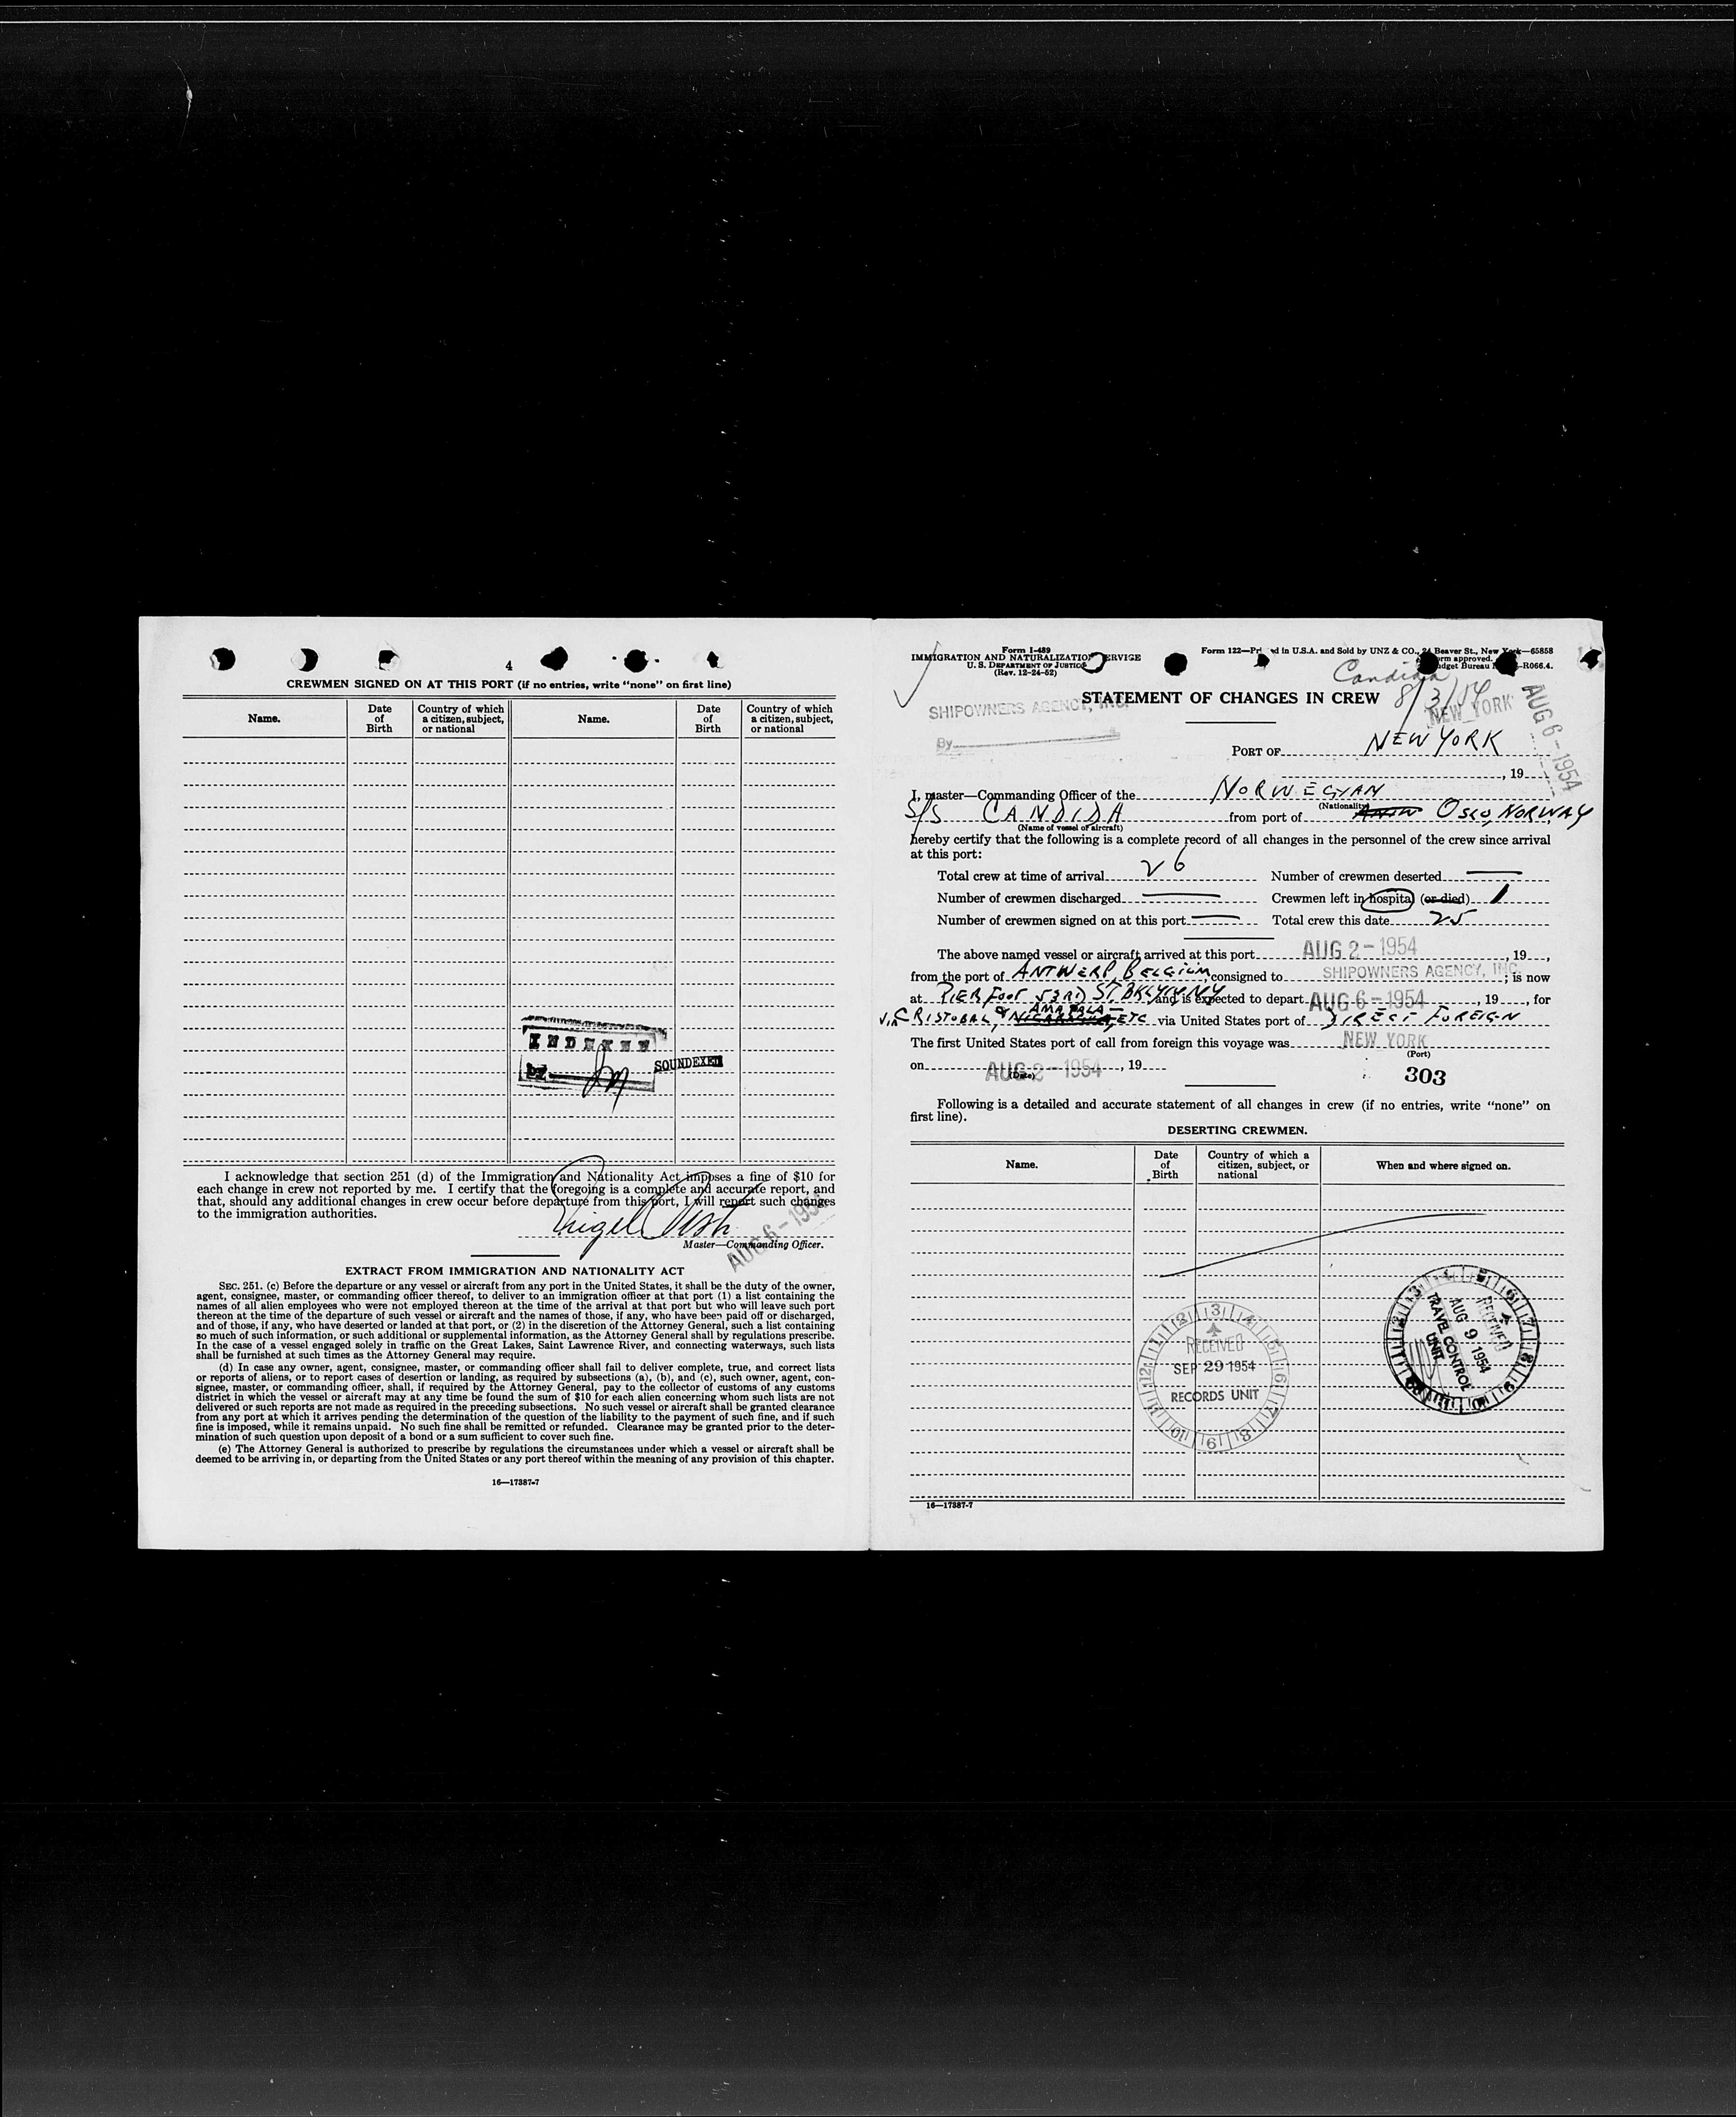 4
CREWMEN SIGNED ON AT THIS PORT (if no entries, write "none" on first line)
Name.
Date of Birth
Country of which a citizen, subject, or national
Name.
Date of Birth
Country of which a citizen, subject, or national
INDEXED
by
SOUNDEXED
I acknowledge that section 251 (d) of the Immigration and Nationality Act imposes a fine of $10 for
each change in crew not reported by me. I certify that the foregoing is a complete and accurate report, and
that, should any additional changes in crew occur before departure from this port, I will report such changes
to the immigration authorities.
Master—Commanding Officer.
AUG 6 - 1954
EXTRACT FROM IMMIGRATION AND NATIONALITY ACT
SEC. 251. (c) Before the departure or any vessel or aircraft from any port in the United States, it shall be the duty of the owner,
agent, consignee, master, or commanding officer thereof, to deliver to an immigration officer at that port (1) a list containing the
names of all alien employees who were not employed thereon at the time of the arrival at that port but who will leave such port
thereon at the time of the departure of such vessel or aircraft and the names of those, if any, who have been paid off or discharged,
and of those, if any, who have deserted or landed at that port, or (2) in the discretion of the Attorney General, such a list containing
so much of such information, or such additional or supplemental information, as the Attorney General shall by regulations prescribe.
In the case of a vessel engaged solely in traffic on the Great Lakes, Saint Lawrence River, and connecting waterways, such lists
shall be furnished at such times as the Attorney General may require.
(d) In case any owner, agent, consignee, master, or commanding officer shall fail to deliver complete, true, and correct lists
or reports of aliens, or to report cases of desertion or landing, as required by subsections (a), (b), and (c), such owner, agent, con-
signee, master, or commanding officer, shall, if required by the Attorney General, pay to the collector of customs of any customs
district in which the vessel or aircraft may at any time be found the sum of $10 for each alien concerning whom such lists are not
delivered or such reports are not made as required in the preceding subsections. No such vessel or aircraft shall be granted clearance
from any port at which it arrives pending the determination of the question of the liability to the payment of such fine, and if such
fine is imposed, while it remains unpaid. No such fine shall be remitted or refunded. Clearance may be granted prior to the deter-
mination of such question upon deposit of a bond or a sum sufficient to cover such fine.
(e) The Attorney General is authorized to prescribe by regulations the circumstances under which a vessel or aircraft shall be
deemed to be arriving in, or departing from the United States or any port thereof within the meaning of any provision of this chapter.
16—17387-7
Form I-489
IMMIGRATION AND NATURALIZATION SERVICE
U. S. DEPARTMENT OF JUSTICE
(Rev. 12-24-52)
Form 122—Printed in U.S.A. and Sold by UNZ & CO., 24 Beaver St., New York—65858
Form approved.
Budget Bureau -R066.4.
Candida
8/3/54
STATEMENT OF CHANGES IN CREW
SHIPOWNERS AGENCY, INC.
By
NEW YORK
AUG 6 - 1954
PORT OF NEW YORK
, 19
I, master—Commanding Officer of the NORWEGIAN
(Nationality)
S/S CANDIDA from port of OSLO, NORWAY
(Name of vessel or aircraft)
hereby certify that the following is a complete record of all changes in the personnel of the crew since arrival
at this port:
Total crew at time of arrival 26 Number of crewmen deserted —
Number of crewmen discharged — Crewmen left in hospital (or died) 1
Number of crewmen signed on at this port — Total crew this date 25
The above named vessel or aircraft arrived at this port AUG 2 - 1954, 19 ,
from the port of ANTWERP, BELGIUM, consigned to SHIPOWNERS AGENCY, INC.; is now
at PIER FOOT 53RD ST. BKLYN NY and is expected to depart AUG 6 - 1954, 19 , for
VIA CRISTOBAL & AMAPALA — ETC via United States port of DIRECT FOREIGN
The first United States port of call from foreign this voyage was NEW YORK
(Port)
on AUG 2 - 1954, 19
(Date)
303
Following is a detailed and accurate statement of all changes in crew (if no entries, write "none" on
first line).
DESERTING CREWMEN.
Name.
Date of Birth
Country of which a citizen, subject, or national
When and where signed on.
RECEIVED
SEP 29 1954
RECORDS UNIT
RECEIVED
AUG 9 1954
TRAVEL CONTROL
UNIT
16—17387-7